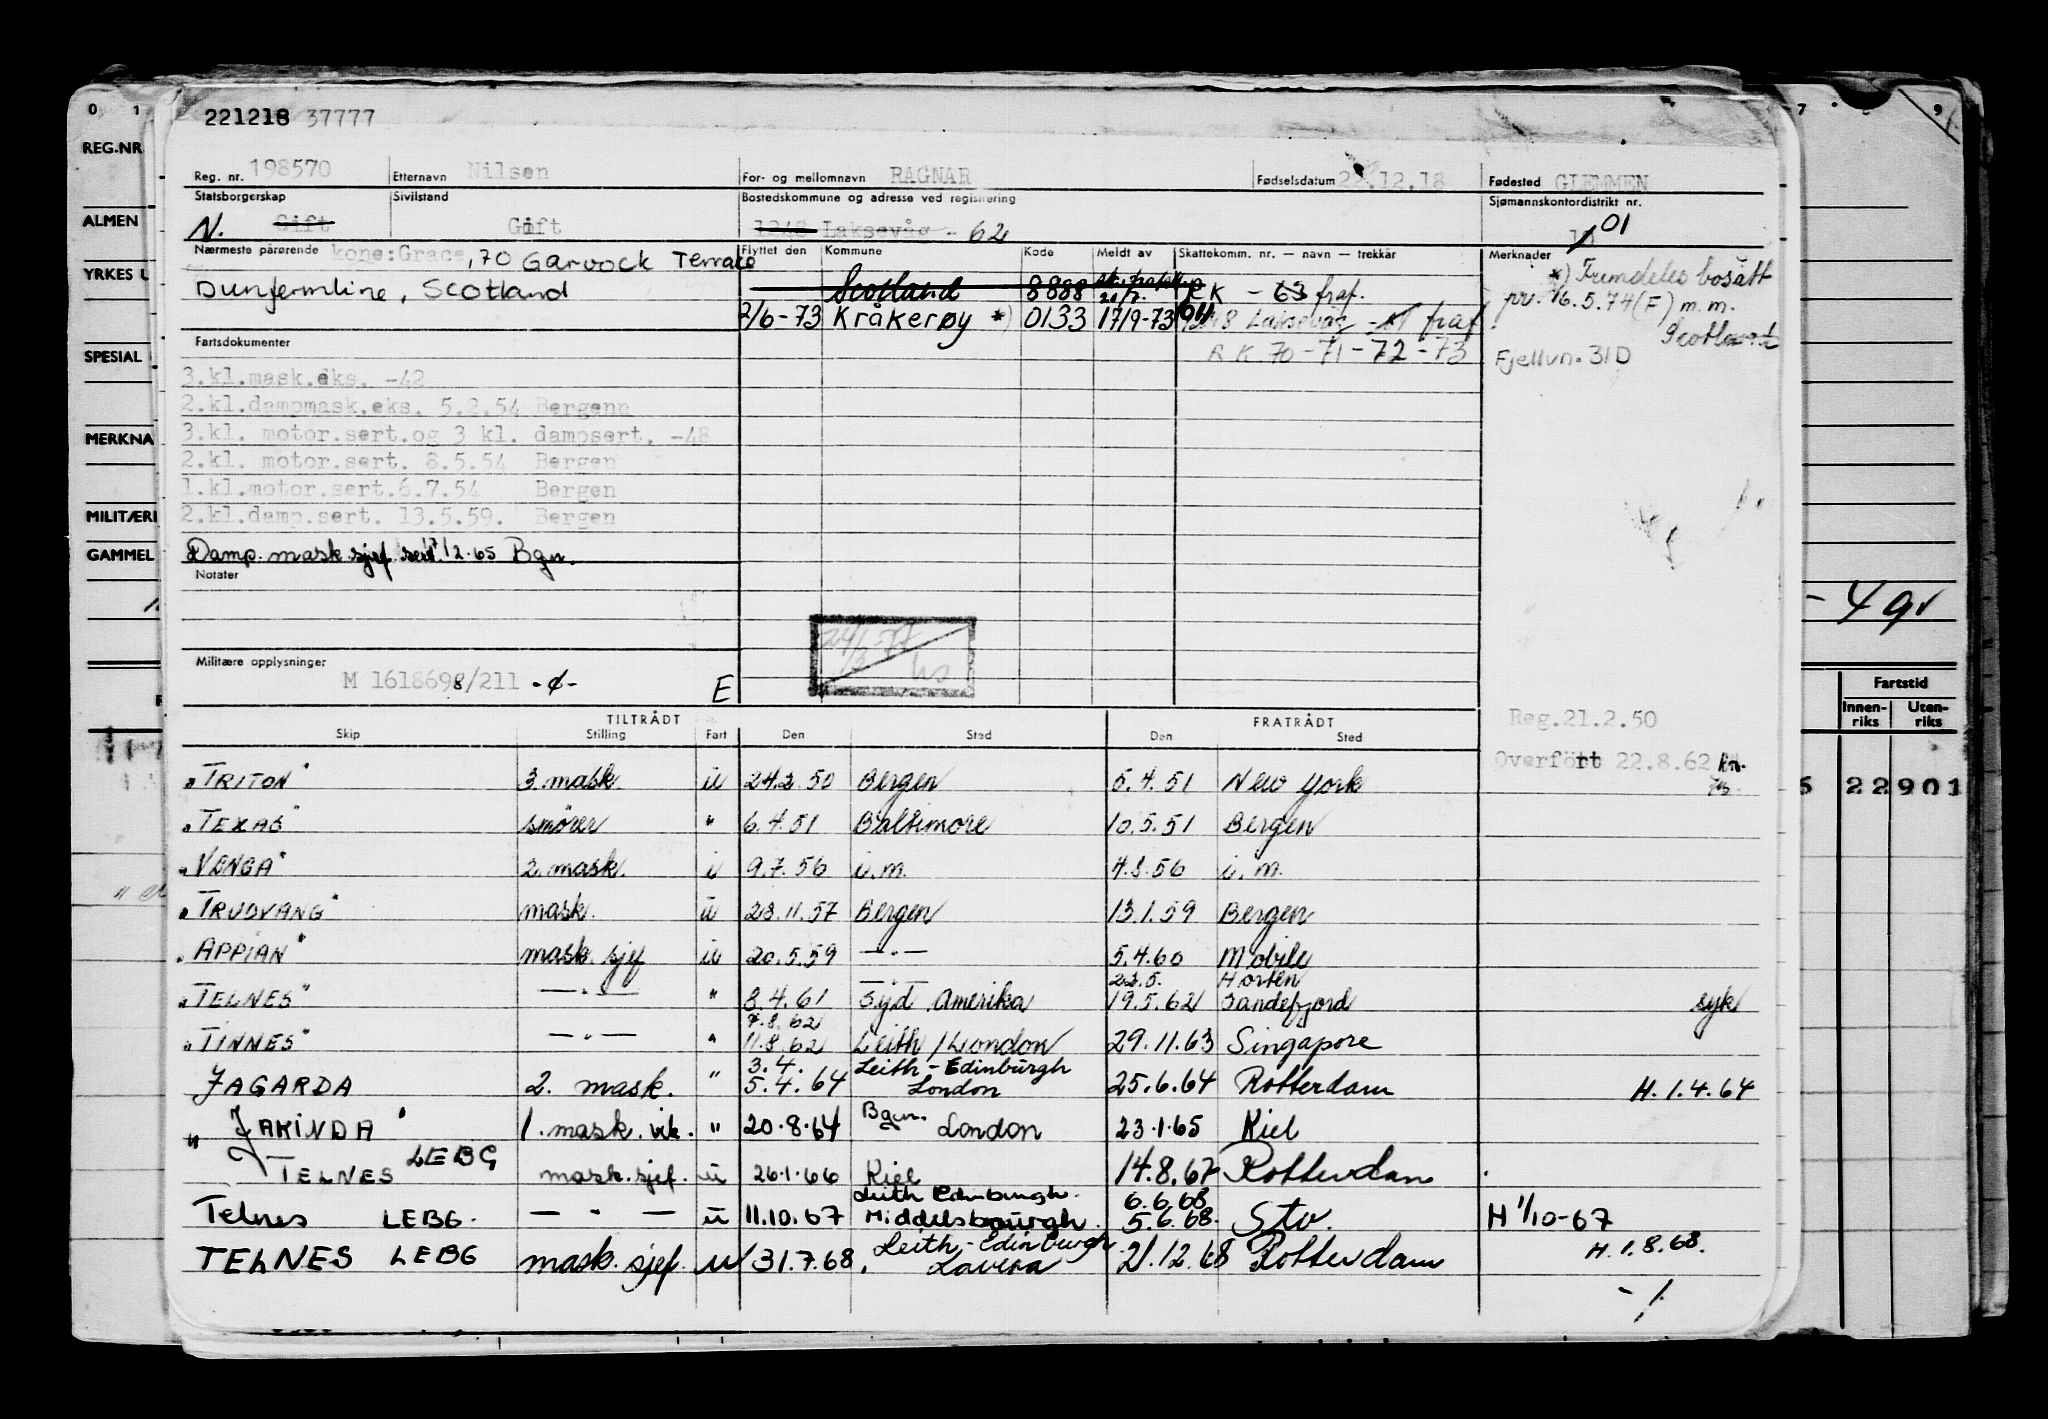 221218 37777
Reg. nr. 198570 Etternavn Nilsen For- og mellomnavn RAGNAR Fødselsdatum 22.12.18 Fødested GLEMMEN
Statsborgerskap Sivilstand Bostedskommune og adresse ved registrering Sjømannskontordistrikt nr.
N. Gift Gift 1248 Laksevåg - 62 10 01
Nærmeste pårørende kone: Grace, 70 Garvock Terrace Flyttet den Kommune Kode Meldt av Skattekomm. nr. — navn — trekkår Merknader
Dunfermline, Scotland Scotland 8888 RK - 63 fraf. *) Fremdeles bosatt
pr. 16.5.74 (F) m.m.
2/6-73 Kråkerøy *) 0133 17/9-73 Laksevåg fraf Scotland
Fartsdokumenter RK 70-71-72-73 Fjellvn. 31D
3.kl.mask.eks. -42
2.kl.dampmask.eks. 5.2.54 Bergenn
3.kl. motor.sert.og 3 kl. dampsert. -48
2.kl. motor.sert. 8.5.54 Bergen
1.kl.motor.sert.6.7.54 Bergen
2.kl.damp.sert. 13.5.59. Bergen
Damp.mask.sjef.sert. 2.65 Bgn.
Notater
24/3-77 hs
Militære opplysninger
M 1618698/211 E
TILTRÅDT FRATRÅDT Reg.21.2.50
Skip Stilling Fart Den Sted Den Sted
Overført 22.8.62
"TRITON" 3. mask. u 24.2.50 Bergen 5.4.51 New York
"TEXAS" smører " 6.4.51 Baltimore 10.5.51 Bergen
"VENGA" 2. mask. i 9.7.56 i.m. 4.8.56 i.m.
"TRUDVANG" mask. u 23.11.57 Bergen 13.1.59 Bergen
"APPIAN" mask. sjef u 20.5.59 —"— 5.4.60 Mobile
23.5. Horten
"TELNES" —"— " 8.4.61 Syd Amerika 19.5.62 Sandefjord syk
7.8.62
"TINNES" —"— " 11.8.62 Leith / London 29.11.63 Singapore
3.4. Leith - Edinburgh
JAGARDA 2. mask. " 5.4.64 London 25.6.64 Rotterdam H. 1.4.64
"JAKINDA" 1. mask. vik. " 20.8.64 Bgn. London 23.1.65 Kiel
TELNES LEBG mask. sjef. u 26.1.66 Kiel 14.8.67 Rotterdam
Leith Edinburgh. 6.6.68
Telnes LEBG. —"— u 11.10.67 Middelsbourgh. 5.6.68. Sto. H 1/10-67
Leith - Edinburgh H. 1.8.68.
TELNES LEBG mask. sjef. u 31.7.68. Lavera 21.12.68 Rotterdam
0 1
REG.NR
ALMEN
YRKES U
SPESIAL
MERKNA
MILITÆRE
GAMMEL
7 9
Fartstid
Innen-riks Uten-riks
22901